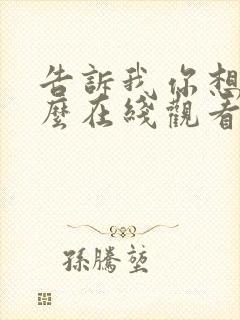 告訴我你想
麼在綫觀看
孫騰堃